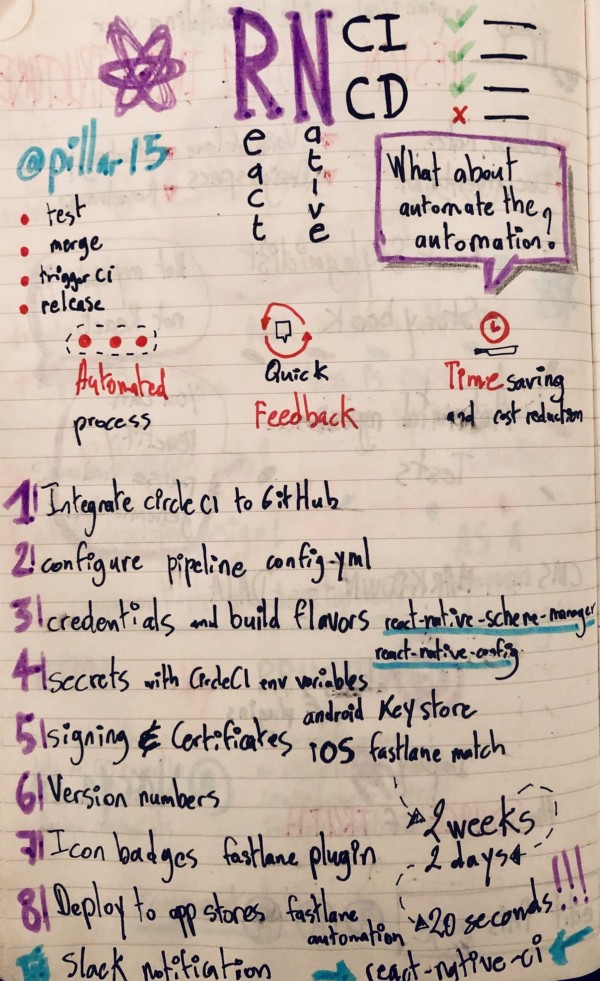 RN CI
CD
eact
ative
@pillar15
What about
automate the
automation?
test
merge
trigger ci
release
Automated
process
Quick
Feedback
Time saving
and cost reduction
1 Integrate circle CI to GitHub
2 configure pipeline config-yml
3 credentials and build flavors react-native-scheme-manager
react-native-config
4 secrets with CircleCI env variables
5 signing & Certificates android Keystore
iOS fastlane match
6 Version numbers
7 Icon badges fastlane plugin
8 Deploy to app stores fastlane
automation
2 weeks
2 days
20 seconds!!!
Slack notification
react-native-ci